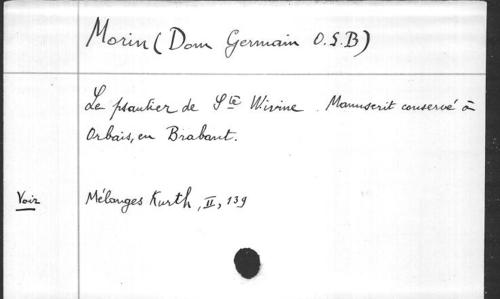 Morin (Dom Germain O.S.B)
Le psautier de Ste Wivine. Manuscrit conservé à
Orbais, en Brabant.
Voir Mélanges Kurth, II, 139